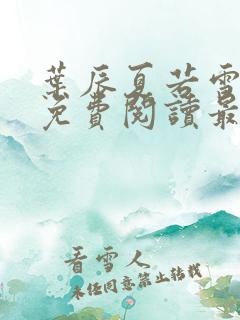 葉辰夏若雪
免費閱讀最
看雪人
未經同意禁止轉載